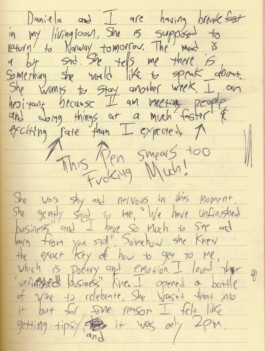 Daniela and I are having breakfast
in my livingroom. She is supposed to
return to Norway tomorrow. The mood is
a bit sad. She tells me there is
something she would like to speak about.
She wants to stay another week. I am
hesitant because I am meeting people
and doing things at a much faster &
exciting rate than I expected.
This Pen smears too
Fucking Much!
She was shy and nervous in this moment.
She gently said to me, "We have unfinished
business and I have so much to see and
learn from you still". Somehow she knew
the exact key of how to get to me,
which is poetry and emotion. I loved her
"unfinished business" line. I opened a bottle
of wine to celebrate. She wasn't that into
it but for some reason I felt like
getting tipsy and it was only 2pm.